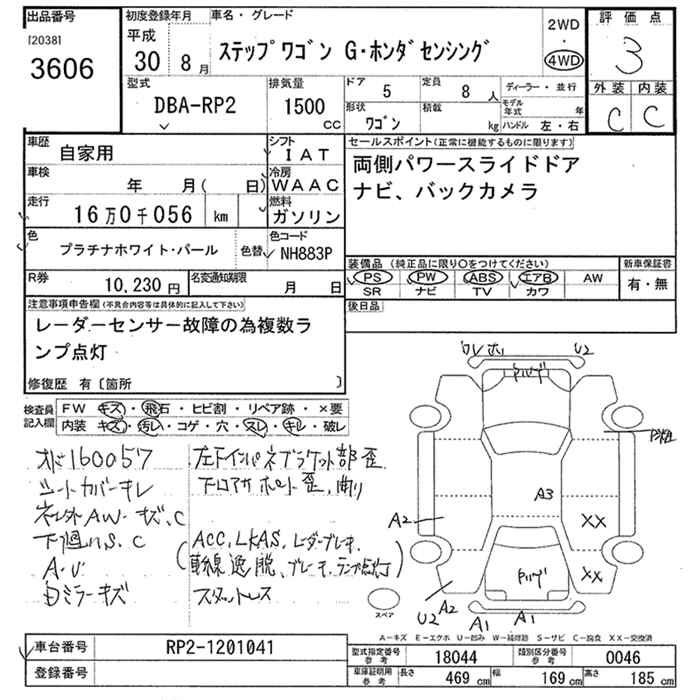 出品番号
[2038]
3606
初度登録年月
平成
30年 8月
車名・グレード
ステップワゴン G・ホンダセンシング
2WD
・
4WD
評価点
3
外装 内装
C C
型式
DBA-RP2
排気量
1500
CC
ドア
5
定員
8人
形状
ワゴン
積載
kg
ディーラー・並行
モデル年式 年
ハンドル 左・右
車歴
自家用
シフト
IAT
車検
年 月( 日)
冷房
WAAC
走行
16万0千056 km
燃料
ガソリン
色
プラチナホワイト・パール
色替
色コード
NH883P
R券
10,230円
名変通知期限
月 日
セールスポイント(正常に機能するものに限ります)
両側パワースライドドア
ナビ、バックカメラ
装備品(純正品に限り○をつけてください)
PS PW ABS エアB AW
SR ナビ TV カワ
新車保証書
有・無
後日品
注意事項申告欄(不具合内容等は具体的に記入して下さい)
レーダーセンサー故障の為複数ラ
ンプ点灯
修復歴 有〔箇所 〕
検査員
記入欄
FW キズ・飛石・ヒビ割・リペア跡・×要
内装 キズ・汚い・コゲ・穴・スレ・キレ・破レ
160057
シートカバーキレ
AWキズ、C
下廻りS、C
A・U
ミラーキズ
左下インパネブラケット部歪
下ロアサポート歪、曲り
(ACC、LKAS、レーダーブレーキ、
車線逸脱、ブレーキ、ランプ点灯)
スタットレス
U2
A3
A2
XX
XX
A2
U2
A1
A1
スペア
A-キズ E-エクボ U-凹み W-補修跡 S-サビ C-腐食 XX-交換済
車台番号
RP2-1201041
登録番号
型式指定番号
参考
18044
類別区分番号
参考
0046
車庫証明用
参考
長さ
469 cm
幅
169 cm
高さ
185 cm